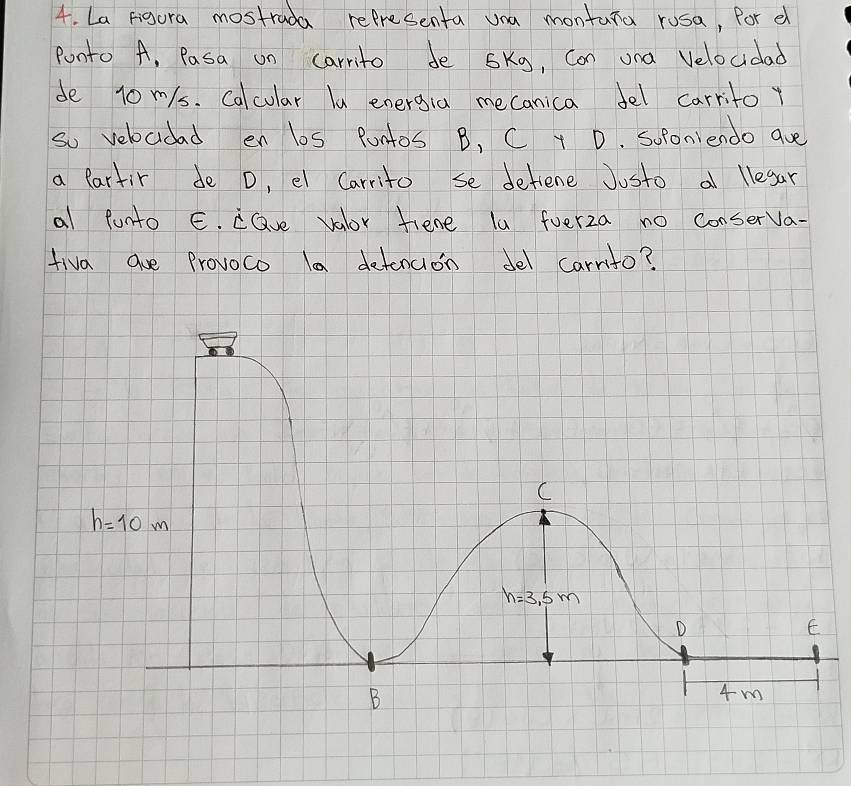 4. La Figura mostrada representa una montaña rusa, Por el
Punto A, Pasa un carrito de 5Kg, con una velocidad
de 10 m/s. Calcular la energía mecanica del carrito y
su velocidad en los Puntos B, C y D. Suponiendo que
a Partir de D, el Carrito se detiene Justo al llegar
al Punto E. ¿Que valor tiene la fuerza no conserva-
tiva que Provoco la detención del carrito?
C
h=10 m
h=3,5 m
D
E
B
4m